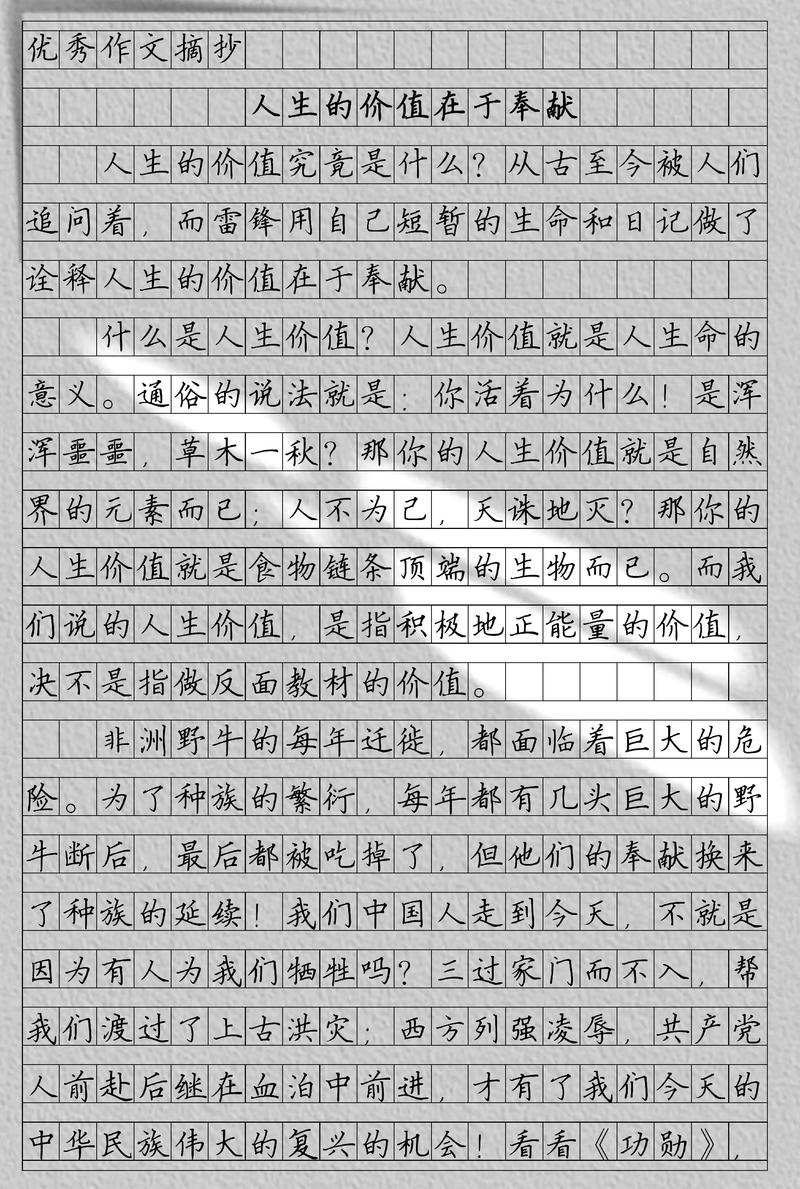 优秀作文摘抄
人生的价值在于奉献
人生的价值究竟是什么？从古至今被人们
追问着，而雷锋用自己短暂的生命和日记做了
诠释人生的价值在于奉献。
什么是人生价值？人生价值就是人生命的
意义。通俗的说法就是：你活着为什么！是浑
浑噩噩，草木一秋？那你的人生价值就是自然
界的元素而已；人不为己，天诛地灭？那你的
人生价值就是食物链条顶端的生物而已。而我
们说的人生价值，是指积极地正能量的价值，
决不是指做反面教材的价值。
非洲野牛的每年迁徙，都面临着巨大的危
险。为了种族的繁衍，每年都有几头巨大的野
牛断后，最后都被吃掉了，但他们的奉献换来
了种族的延续！我们中国人走到今天，不就是
因为有人为我们牺牲吗？三过家门而不入，帮
我们渡过了上古洪灾；西方列强凌辱，共产党
人前赴后继在血泊中前进，才有了我们今天的
中华民族伟大的复兴的机会！看看《功勋》，